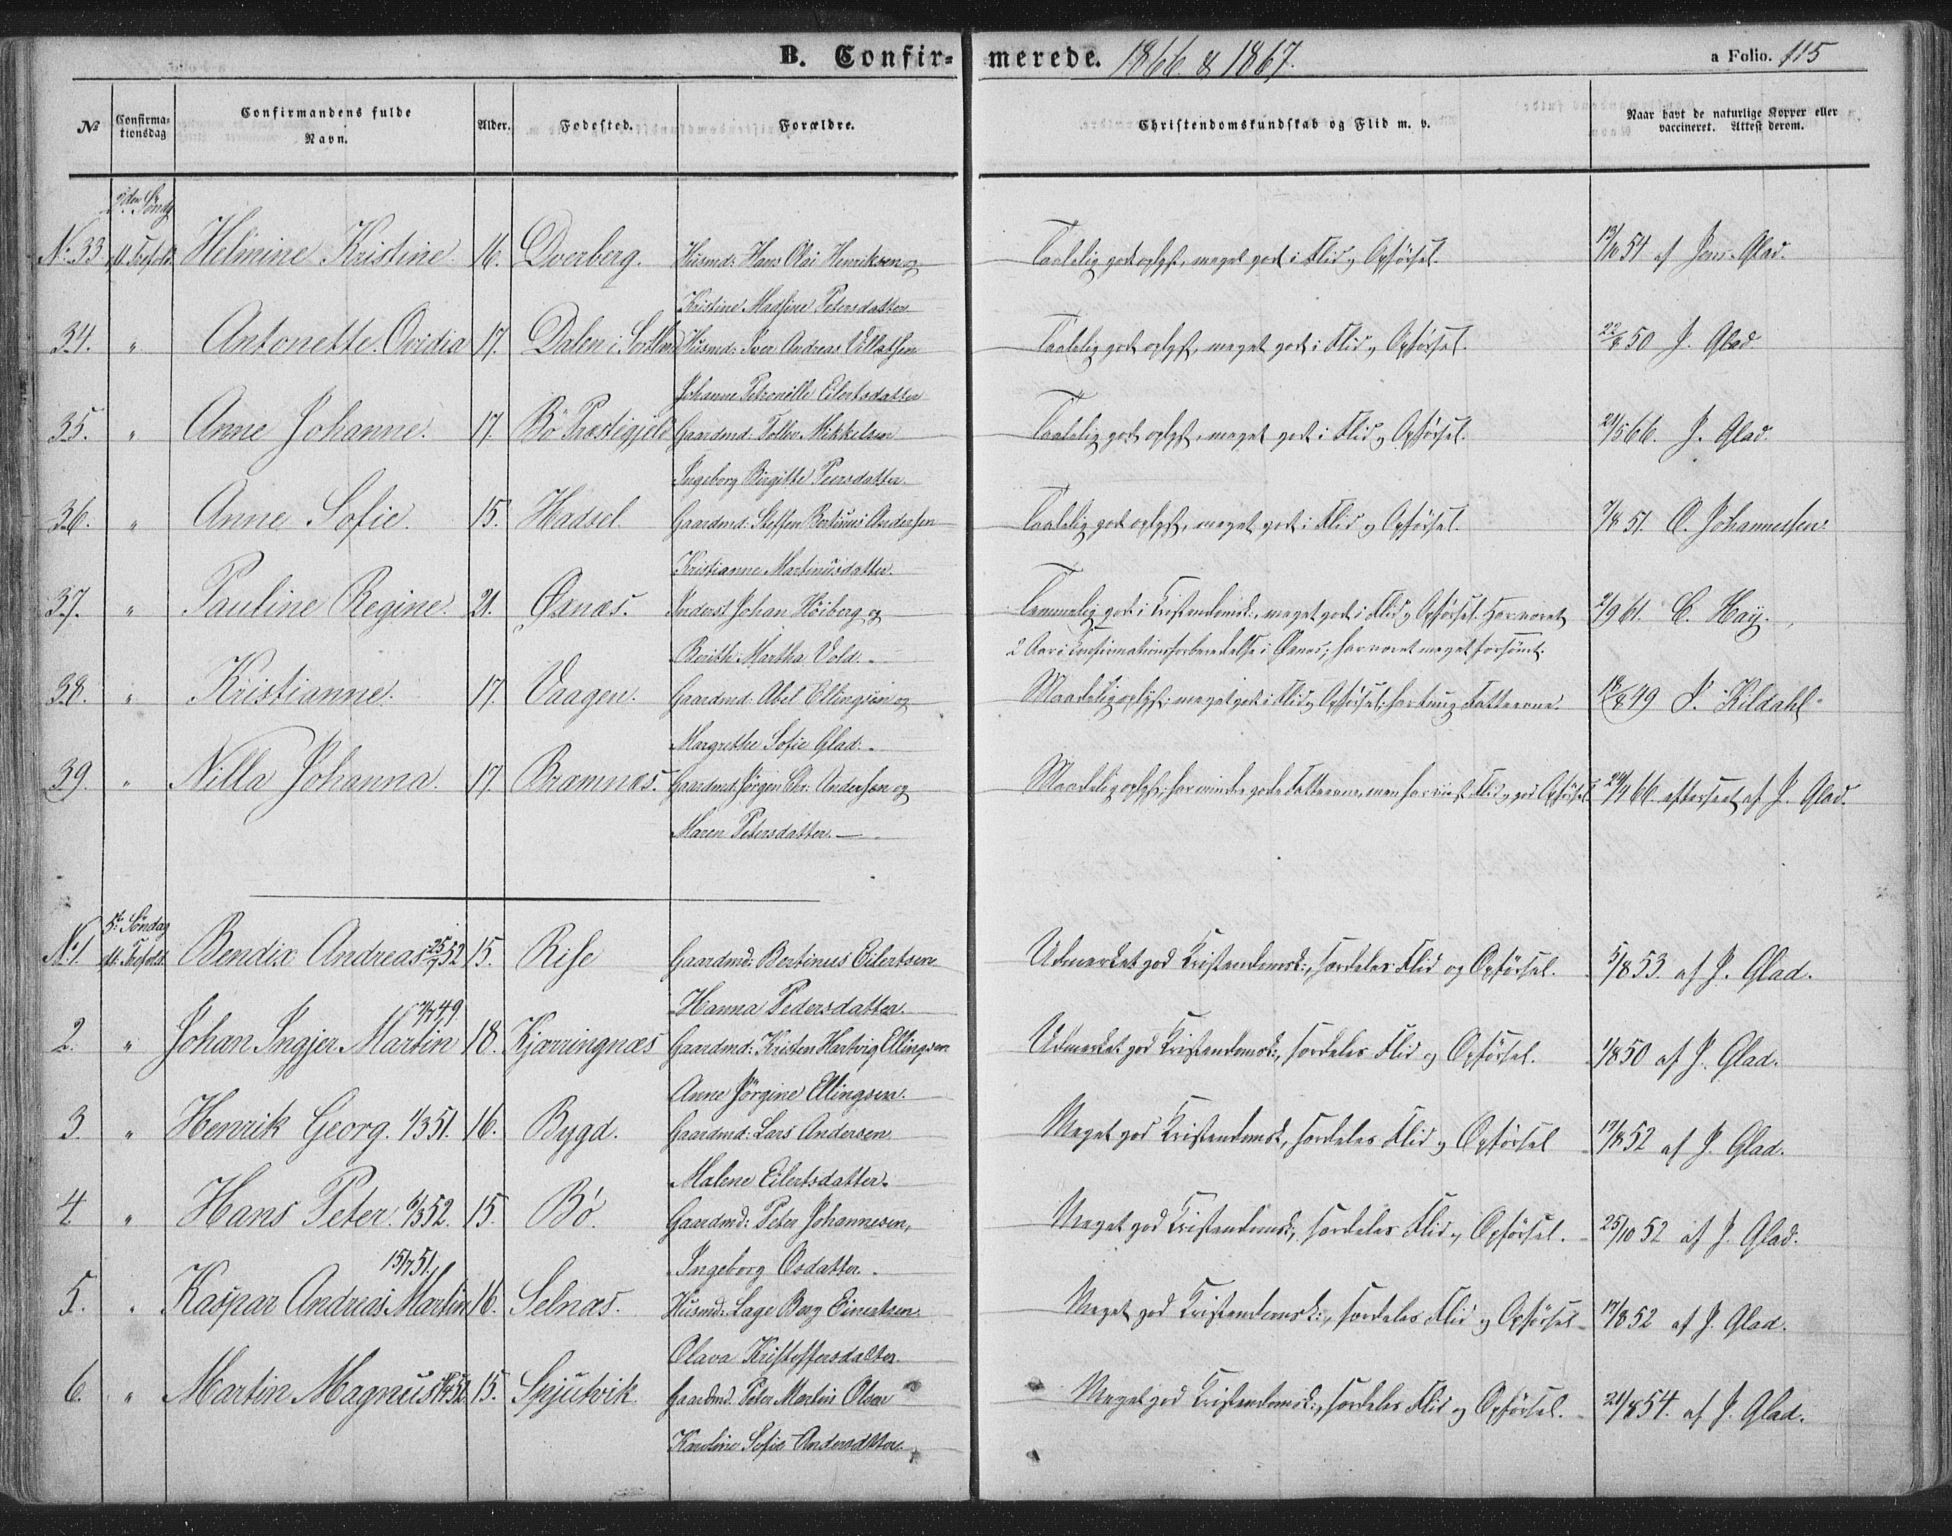 B. Confirmerede. 1866 & 1867. a Folio. 115
No Confirmationsdag Confirmandens fulde Navn. Alder. Fodested. Forældre. Christendomskundskab og Flid m. v. Naar havt de naturlige Kopper eller vaccineret. Attest derom.
2den Sönd
No 33 Helmine Kristine. 16. Dverberg. Husmd: Hans Olai Henriksen og Taalelig godt oplyst, meget god i Flid og Opførsel. af Jens Glad.
Kristine Madsine Petersdatter
34. " Antonette Ovidia 17. Dalen i Husmd: Iver Andreas Taalelig godt oplyst, meget god i Flid og Opførsel. 22/8 50 J. Glad.
Johanne Petronelle Eilertsdatter
35. " Anne Johanne. 17. Bö Præstegjeld Gaardmd: Toller Mikkelsen Taalelig godt oplyst, meget god i Flid og Opførsel. 24/5 66. J. Glad.
Ingeborg Birgitte Peersdatter
36. " Anne Sofie. 15. Hadsel. Gaardmd: Steffen Bertinus Andersen Taalelig godt oplyst, meget god i Flid og Opførsel. 7/8 51. O. Johannessen.
Kristianne Martinusdatter.
37. " Pauline Regine. 21. Øxnæs. Inderst Johan Höiberg og Temmelig god i Kristendomsk:, meget god i Flid og Opførsel. Har været 2/9 61. C. Hay.
Berith Martha Vold. 2 Aar i Confirmationsforberedelse i Øxnæs; har været meget forsömt.
38. " Kristianne. 17. Vaagen. Gaardmd: Abel Ellingsen og Maadelig oplyst; meget god i Flid og Opførsel; har tung Fatteevne. 18/8 49 Kildahl
Margrethe Sofie Glad.
39. " Nilla Johanna. 17. Bramnæs. Gaardmd: Jørgen Chr: Andersen og Maadelig oplyst; har mindre gode Fatteevne, men har viist Flid og god Opførsel. 66. efterseet af J. Glad.
Maren Petersdatter.
5te Söndag
No 1. Bendix Andreas 25/7 52 15. Rise Gaardmd: Bertinus Eilertsen Udmærket god Kristendomsk:, særdeles Flid og Opførsel. 5/8 53. af J. Glad.
Hanna Pedersdatter.
2. " Johan Ingjer Martin 49 18. Kjærringnæs Gaardmd: Kristen Hartvig Ellingsen Udmærket god Kristendomsk:, særdeles Flid og Opførsel. 1/8 50 af J. Glad.
Anne Jörgine Ellingsen.
3. " Henrik Georg. 1/3 51. 16. Bygd. Gaardmd: Lars Andersen Meget god Kristendomsk:, særdeles Flid og Opførsel 17/8 52 af J. Glad.
Malene Eilertsdatter.
4 " Hans Peter. 6/3 52. 15. Bö. Gaardmd: Peter Johannesen, Meget god Kristendomsk:, særdeles Flid og Opførsel. 25/10 52 af J. Glad.
Ingeborg Osdatter.
5. " Kaspar Andreas Martin 15/7 51. 16. Selnæs. Husmd: Lage Berg Einertsen Meget god Kristendomsk:, særdeles Flid og Opførsel 17/8 52 af J. Glad.
Olava Kristoffersdatter.
6. " Martin Magnus 52 15. Spjutvik. Gaardmd: Peter Martin Olsen Meget god Kristendomsk:, særdeles Flid og Opførsel. 21/8 54. af J. Glad.
Karoline Sofie Andersdatter.